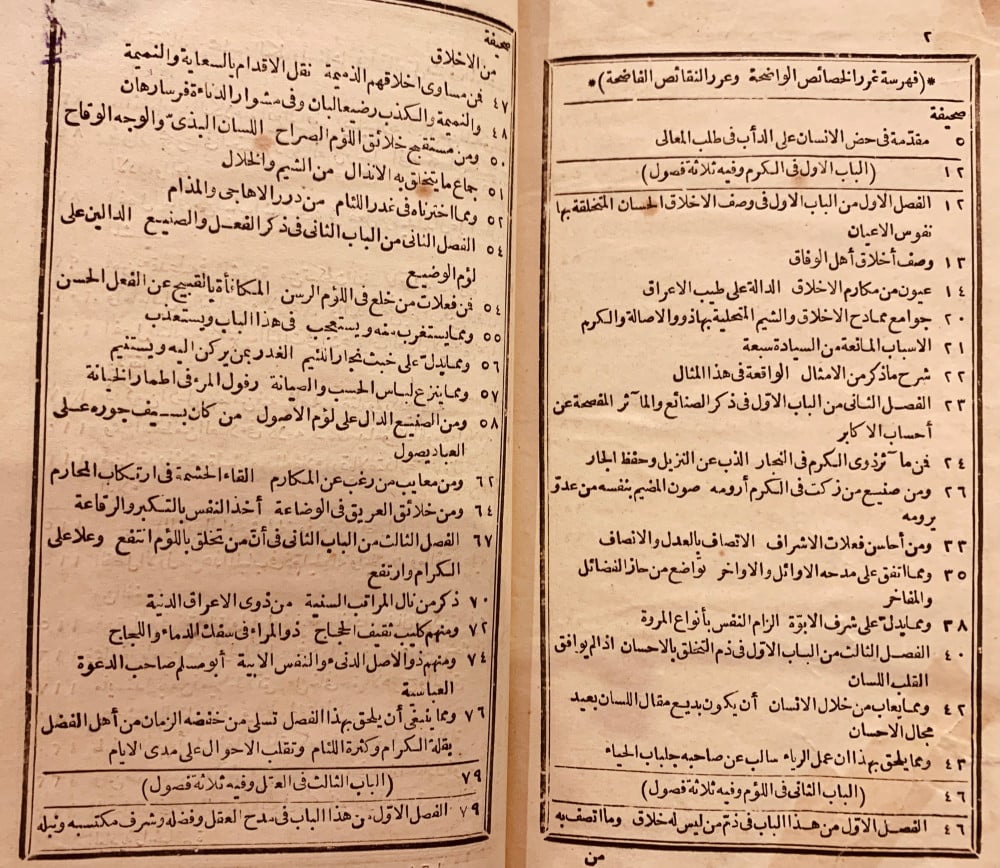 ٢
*(فهرسة غرر الخصائص الواضحة وعرر النقائص الفاضحة)*
صحيفة
٥ مقدّمة فى حض الانسان على الدأب فى طلب المعالى
١٢ (الباب الاول فى الكرم وفيه ثلاثة فصول)
١٢ الفصل الاول من الباب الاول فى وصف الاخلاق الحسان المتخلقة بها
نفوس الاعيان
١٣ وصف أخلاق أهل الوفاق
١٤ عيون من مكارم الاخلاق الدالة على طيب الاعراق
٢٠ جوامع ممادح الاخلاق والشيم المتحلية بها ذوو الاصالة والكرم
٢١ الاسباب المانعة من السيادة سبعة
٢٢ شرح ما ذكر من الامثال الواقعة فى هذا المثال
٢٣ الفصل الثانى من الباب الاول فى ذكر الصنائع والمآثر المفصحة عن
أحساب الاكابر
٢٤ فن مآثر ذوى الكرم فى النجار الذب عن النزيل وحفظ الجار
٢٦ ومن صنيع من زكت فى الكرم أرومه صون المضيم بنفسه من عدوّ
يرومه
٣٣ ومن أحاسن فعلات الاشراف الاتصاف بالعدل والانصاف
٣٥ ومما اتفق على مدحه الاوائل والاواخر تواضع من حاز الفضائل
والمفاخر
٣٨ ومما يدل على شرف الابوّة الزام النفس بأنواع المروة
٤٠ الفصل الثالث من الباب الاول فى ذم التخلق بالاحسان اذا لم يوافق
القلب اللسان
٤٢ ومما يعاب من خلال الانسان أن يكون بديع مقال اللسان بعيد
مجال الاحسان
٤٣ ومما يلحق بهذا ان عمل الرياء سالب عن صاحبه جلباب الحياء
٤٦ (الباب الثانى فى اللؤم وفيه ثلاثة فصول)
٤٦ الفصل الاول من هذا الباب فى ذمّ من ليس له خلاق وما اتصف به
من
صحيفة
من الاخلاق
٤٧ فن مساوى اخلاقهم الذميمة نقل الاقدام بالسعاية والنميمة
٤٨ والنميمة والكذب رضيعا لبان وفى مشوار الدناءة فرسا رهان
٥٠ ومن مستقبح خلائق اللؤم الصراح اللسان البذىّ والوجه الوقاح
٥١ جماع ما يتخلق به الانذال من الشيم والخلال
٥٢ ومما اخترناه فى غدر اللئام من درر الاهاجى والمذام
٥٤ الفصل الثانى من الباب الثانى فى ذكر الفعل والصنيع الدالين على
لؤم الوضيع
٥٤ فن فعلات من خلع فى اللؤم الرسن المكافأة بالقبيح عن الفعل الحسن
٥٥ ومما يستغرب منه ويستعجب فى هذا الباب ويستعذب
٥٦ ومما يدل على خبث نجار اللئيم الغدر بمن يركن اليه ويستنيم
٥٧ ومما ينزع لباس الحسب والصيانة رفول المرء فى اطمار الخيانة
٥٨ ومن الصنيع الدال على لؤم الاصول من كان بسيف جوره على
العباد يصول
٦٢ ومن معايب من رغب عن المكارم القاء الحشمة فى ارتكاب المحارم
٦٤ ومن خلائق العريق فى الوضاعة أخذ النفس بالتكبر والرقاعة
٦٧ الفصل الثالث من الباب الثانى فى أنّ من تخلق باللؤم انتفع وعلا على
الكرام وارتفع
٧٠ ذكر من نال المراتب السنية من ذوى الاعراق الدنية
٧٢ ومنهم كليب ثقيف الحجاج ذو المراء فى سفك الدماء واللجاج
٧٤ ومنهم ذو الاصل الدنىء والنفس الابية أبو مسلم صاحب الدعوة
العباسية
٧٦ ومما ينبغى أن يلحق بهذا الفصل تسلى من خفضه الزمان من أهل الفضل
بقلة الكرام وكثرة اللئام وتقلب الاحوال على مدى الايام
٧٩ (الباب الثالث فى العقل وفيه ثلاثة فصول)
٧٩ الفصل الاول من هذا الباب فى مدح العقل وفضله وشرف مكتسبه ونبله